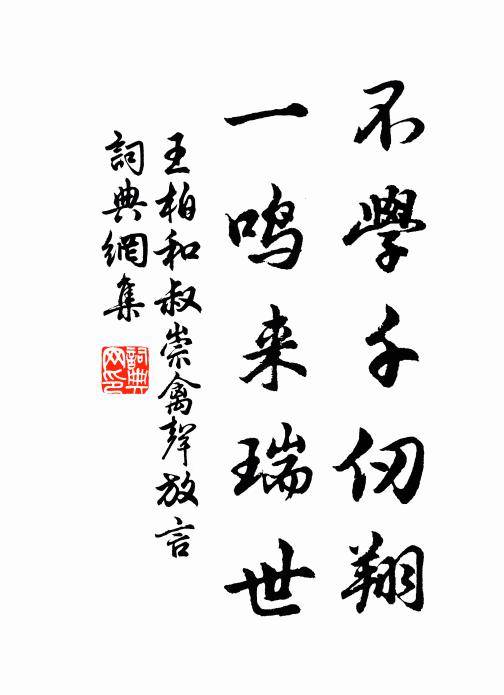 不學千仞翔
一鸣来瑞世
王柏和叔崇禽聲放言
詞典網集
詞典
网印